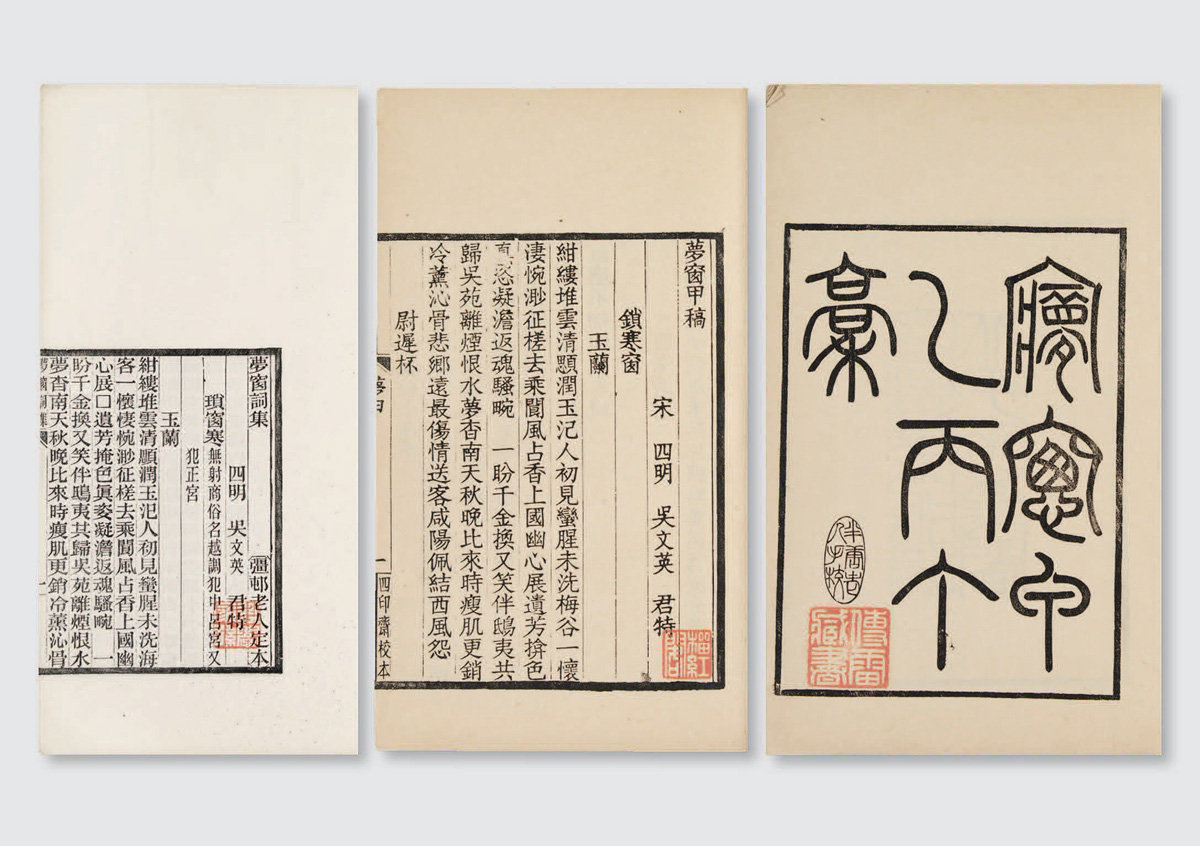 夢窗甲
乙丙丁
稾
傅雷
藏書
夢窗甲稿
宋 四明 吳文英 君特
鎖寒窗
玉蘭
紺縷堆雲清顋潤玉汜人初見蠻腥未洗梅谷一懷
淒惋渺征槎去乘閬風占香上國幽心展遺芳揜色
真恣凝澹返魂騷畹 一盼千金換又笑伴鴟夷共
歸吳苑離煙恨水夢杳南天秋晚比來時瘦肌更銷
冷薰沁骨悲鄉遠最傷情送客咸陽佩結西風怨
尉遲杯
夢甲 一 四印齋校本
夢窗詞集 彊邨老人定本
四明 吳文英 君特
瑣窗寒 無射商俗名越調犯中呂宮又
犯正宮
玉蘭
紺縷堆雲清顋潤玉汜人初見蠻腥未洗海
客一懷悽惋渺征槎去乘閬風占香上國幽
心展□遺芳掩色眞姿凝澹返魂騷畹 一
盼千金換又笑伴鴟夷其歸吳苑離煙恨水
夢杳南天秋晚比來時瘦肌更銷冷薰沁骨
夢窗詞集 一